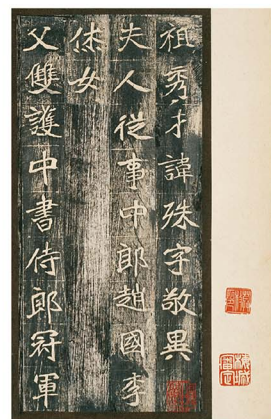 祖秀才諱殊字敬異
夫人從事中郎趙國李
休女
父雙護中書侍郎冠軍